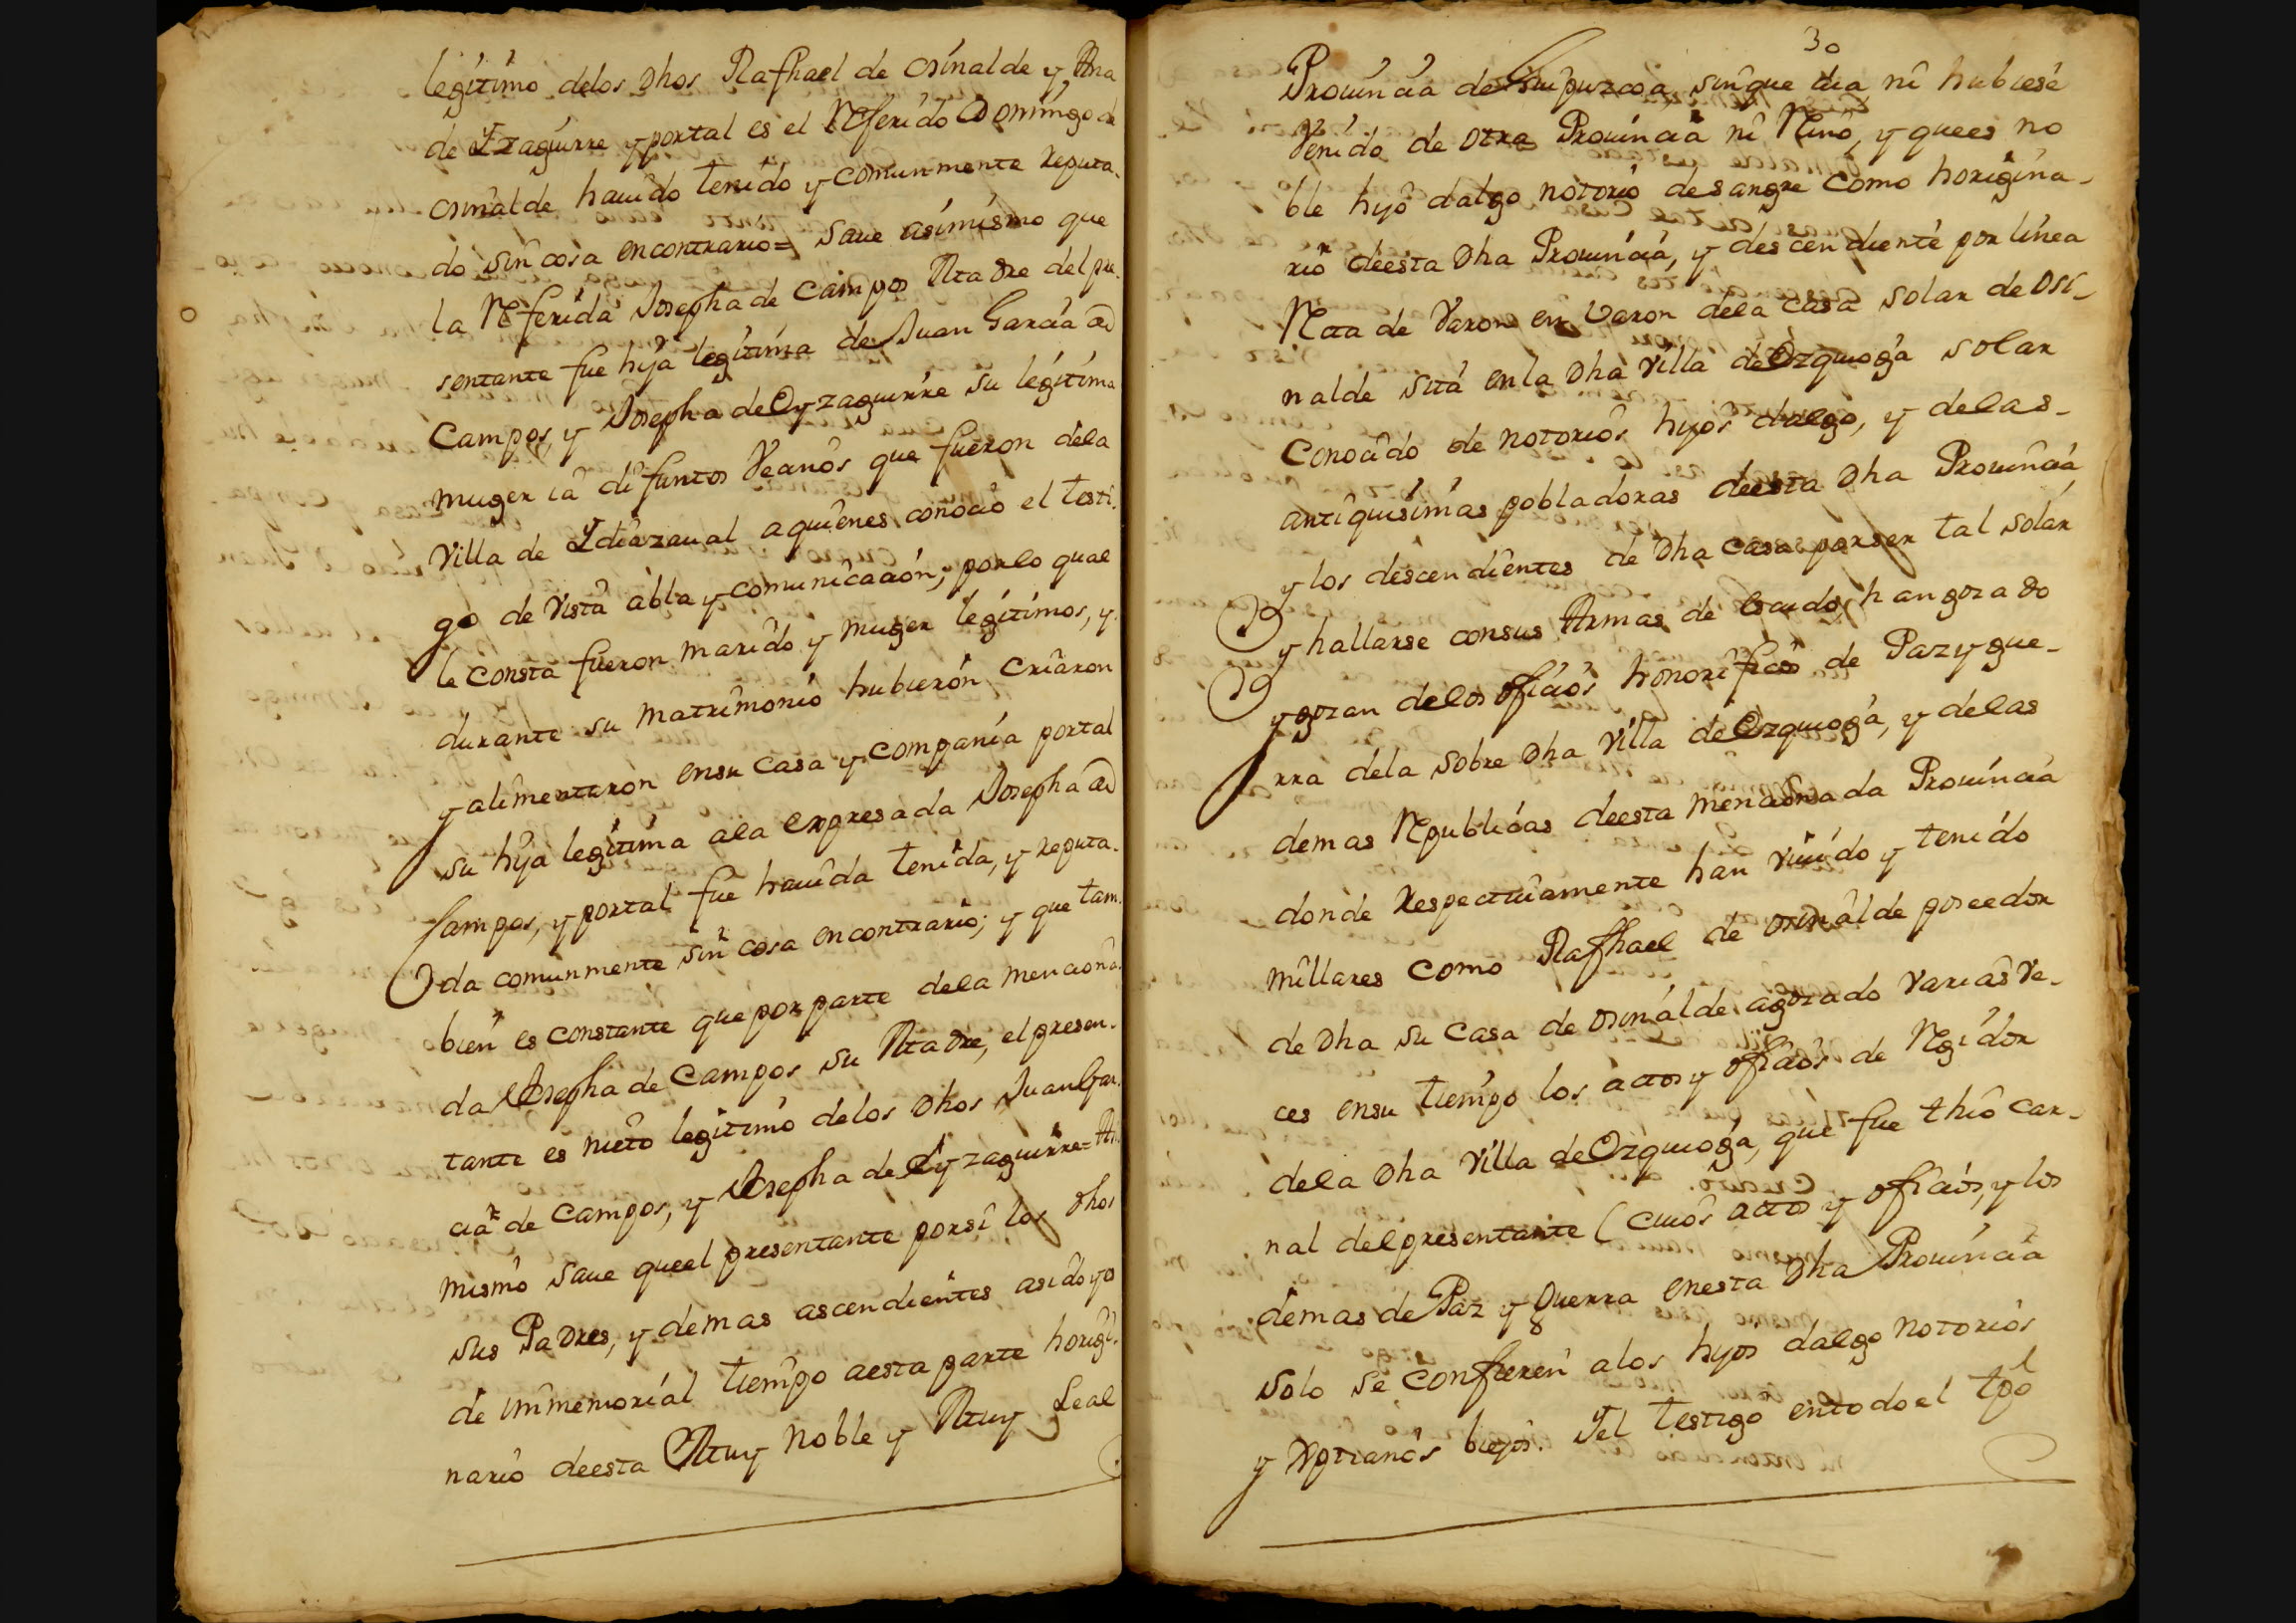 legítimo delos Dhos Rafhael de Osinalde y Ana
de Yzaguirre y portal es el Referido Domingo de
Osinalde hauido tenido y comunmente reputa-
do sin cosa encontrario= Saue asimismo que
la Referida Josepha de Campos Madre del pre-
sentante fue hija legitima de Juan Garcia de
Campos, y Josepha de Oyzaguirre su legitima
muger ia difuntos Veanos que fueron dela
Villa de Ydiazaual aquienes conocio el testi-
go de vista abla y comunicacion, porlo qual
le consta fueron marido y muger legitimos, y
durante su matrimonio hubieron criaron
y alimentaron ensu casa y compania portal
su hija legitima ala expresada Josepha de
Campos, y portal fue hauida tenida, y reputa-
da comunmente sin cosa encontrario; y que tam-
bien es constante que por parte dela menciona-
da Josepha de Campos su Madre, el presen-
tante es nieto legitimo delos Dhos Juan Gar-
cia de Campos, y Josepha de Oyzaguirre= As-
mismo saue queel presentante porsi los Dhos
sus Padres, y demas ascendientes asido yes
de immemorial tiempo aesta parte horigi-
nario deesta Muy Noble y Muy Leal
30
Prouincia de Guipuzcoa, sinque dia ni hubiese
Venido de otra Prouincia ni Reino, y quees no
ble hijo dalgo notorio desangre como horigina-
rio deesta Dha Prouincia, y descendiente por linea
Recta de Varon en Varon dela casa solar de Osi-
nalde sita enla Dha Villa de Ozquioga solar
conocido de notorios hijos dalgo, y delas-
antiquisimas pobladoras deesta Dha Prouincia,
y los descendientes de Dha Casa porser tal solar
y hallarse consus Armas de Escudo, hangozado
ygozan delos oficios honorificos de Pazygue-
rra dela sobre Dha Villa de Ozquioga, y delas
demas Republicas deesta mencionada Prouincia
donde Respectiuamente han viuido y tenido
millares como Rafhael de Osinalde poseedor
de Dha su Casa de Osinalde agozado varias Ve-
ces ensu tiempo los actos y oficios de Regidor
dela Dha Villa de Ozquioga, que fue thio car-
nal delpresentante (cuios actos y oficios, y los
demas de Paz y Guerra enesta Dha Prouincia
solo se confieren alos hijos dalgo notorios
y Xptianos biejos. Yel testigo entodoel tpo